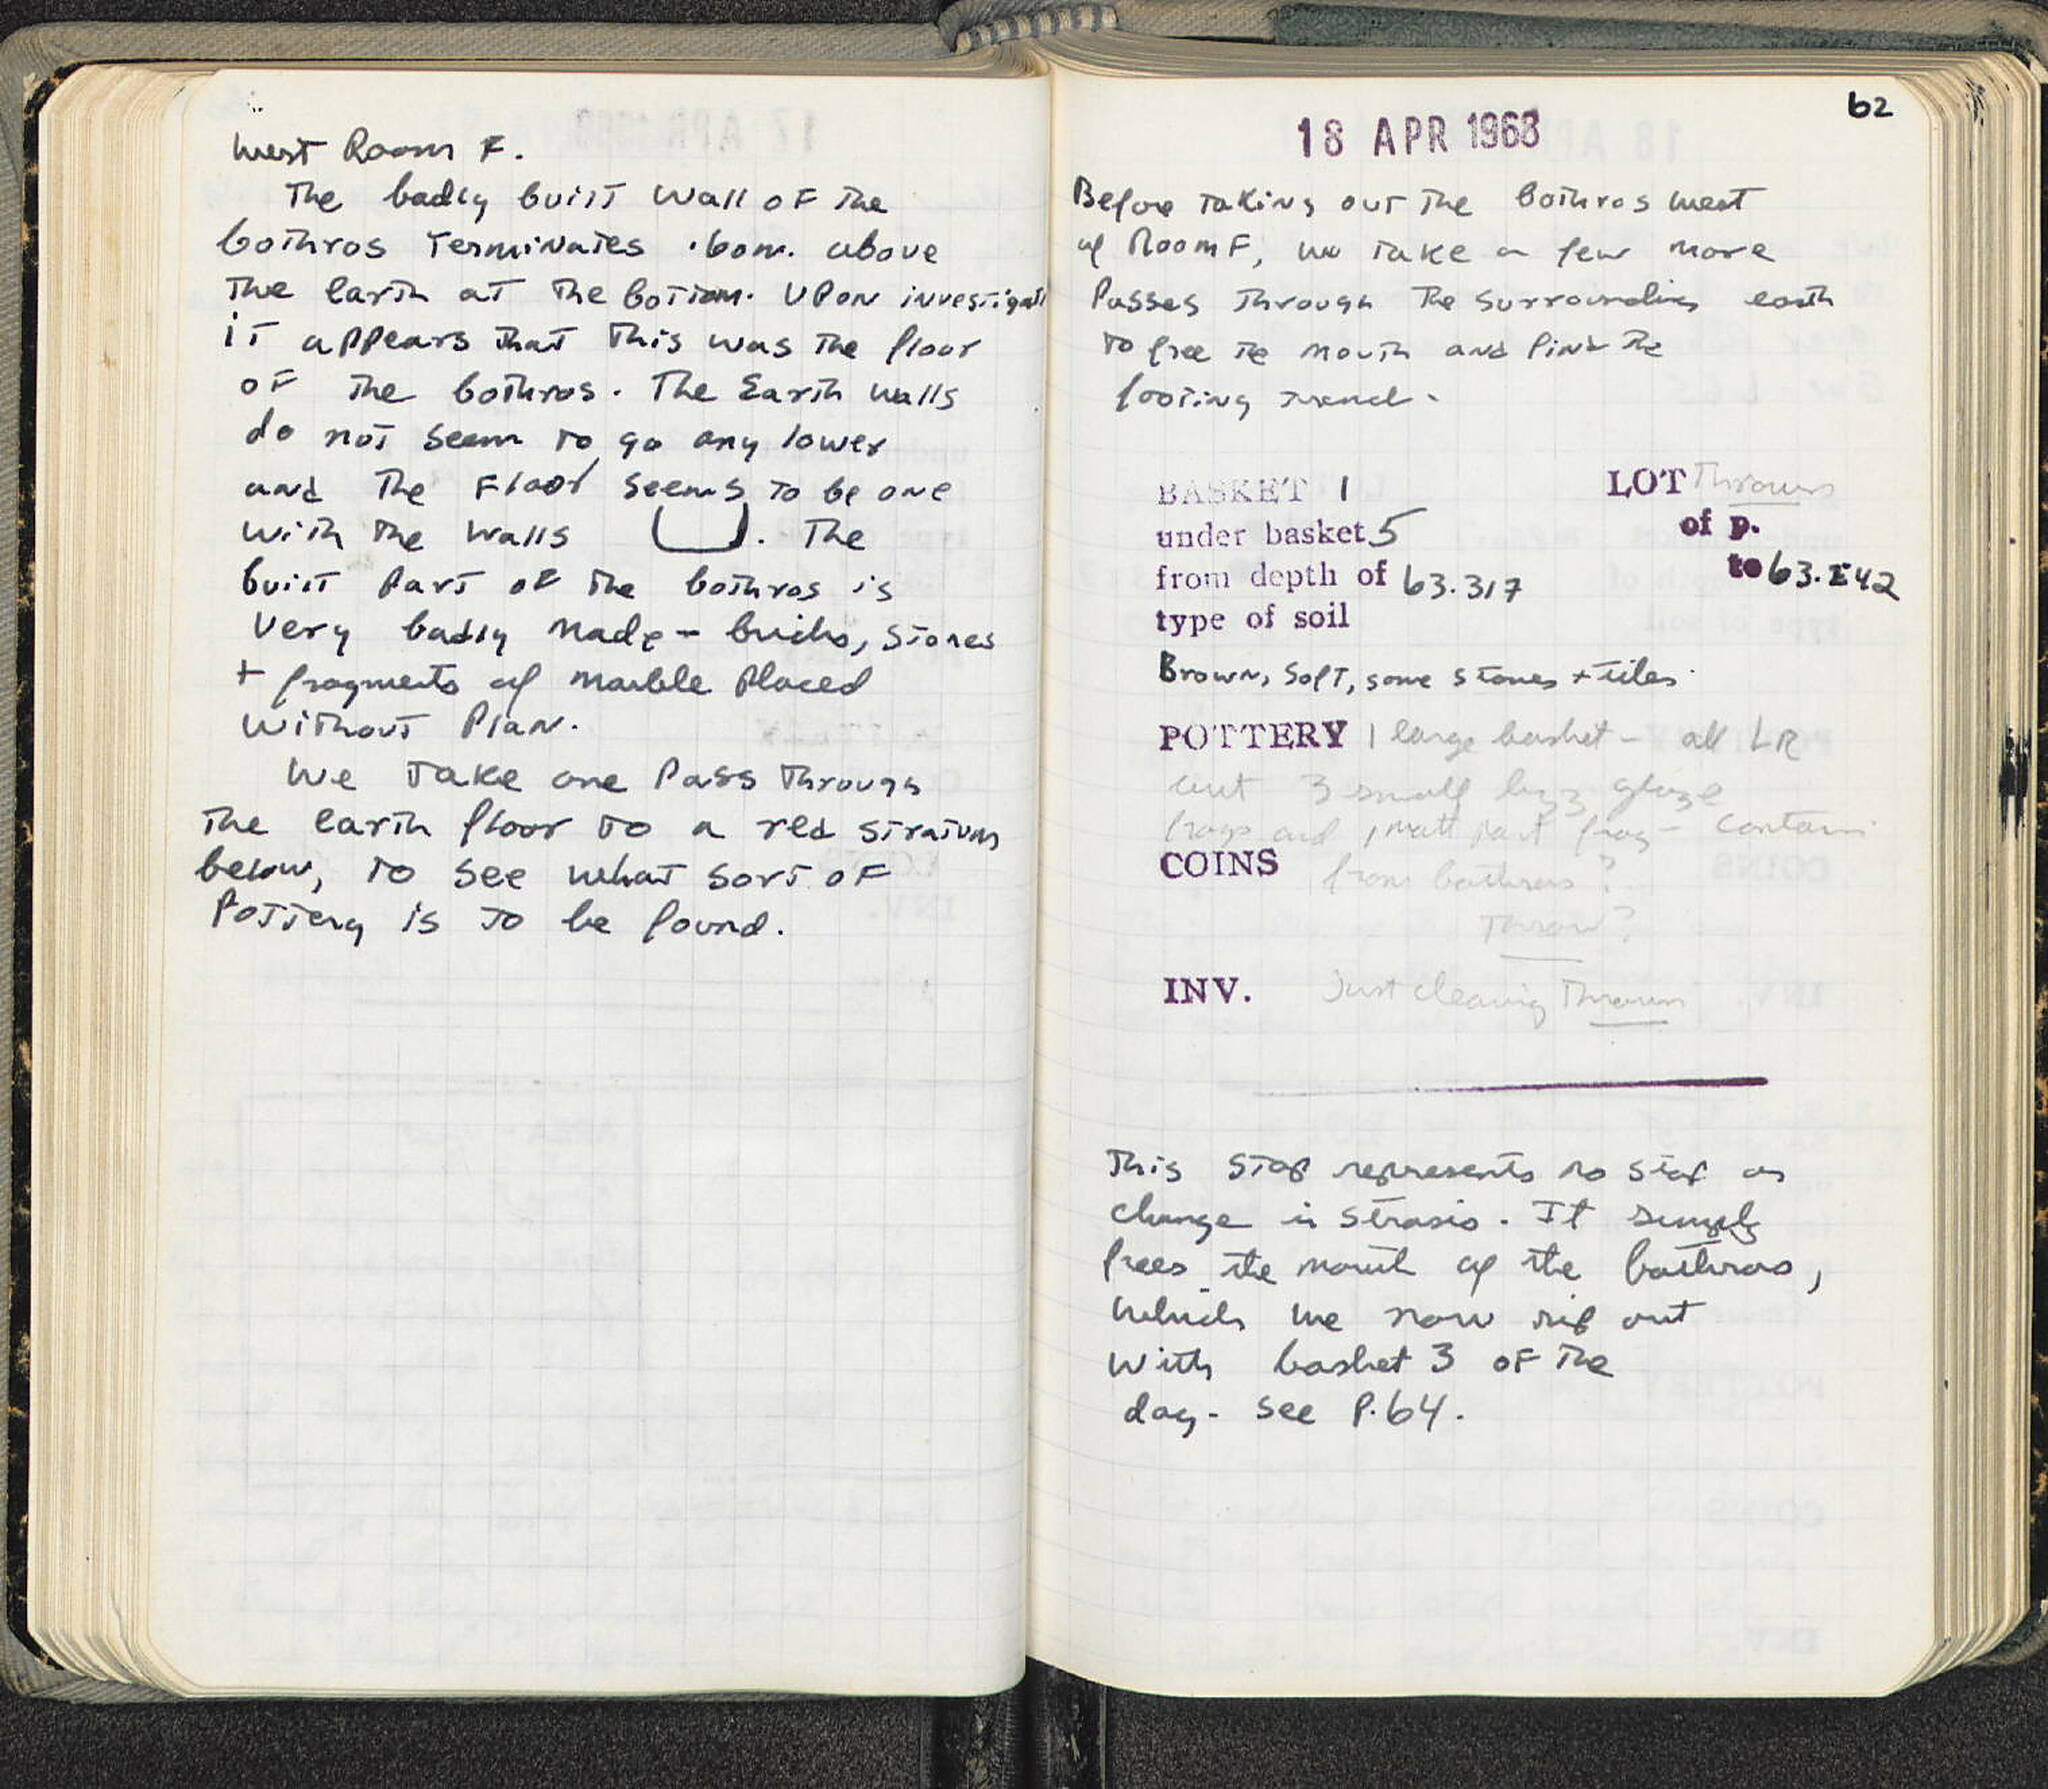 West Room F.
The badly built wall of the
bothros terminates .60m. above
the earth at the bottom. Upon investigati
it appears that this was the floor
of the bothros. The Earth walls
do not seem to go any lower
and the floor seems to be one
with the walls . The
built part of the bothros is
very badly made - bricks, stones
+ fragments of marble placed
without plan.
We take one pass through
the earth floor to a red stratum
below, to see what sort of
pottery is to be found.
62
18 APR 1968
Before taking out the bothros west
of Room F, we take a few more
passes through the surrounding earth
to free the mouth and find the
footing trench.
BASKET 1
LOT Thrown
under basket 5
of p.
from depth of 63.317
to 63.242
type of soil
Brown, soft, some stones + tiles.
POTTERY 1 large basket - all LR
but 3 small byz glaze
frags and 1 matt paint frag - contam.
COINS
from bothros?
Throw?
INV.
Just cleaning Thrown
This stop represents no stop or
change in strosis. It simply
frees the mouth of the bothros,
which we now rip out
with basket 3 of the
day - see P.64.